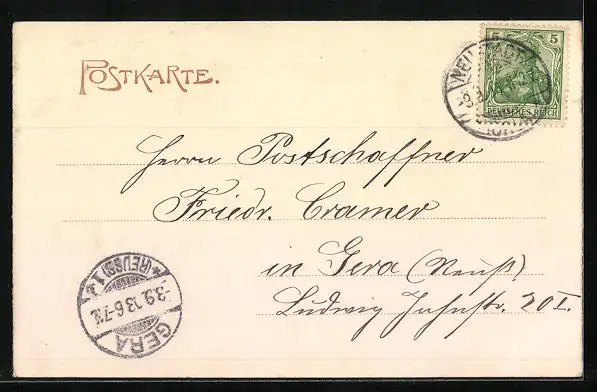 POSTKARTE.
5 5
DEUTSCHES REICH
Herrn Postschaffner
Friedr. Cramer
in Gera (Reuß)
Ludwig Jahnstr. 20 I.
GERA
(REUSS) 1.
3.9. 03 6-7